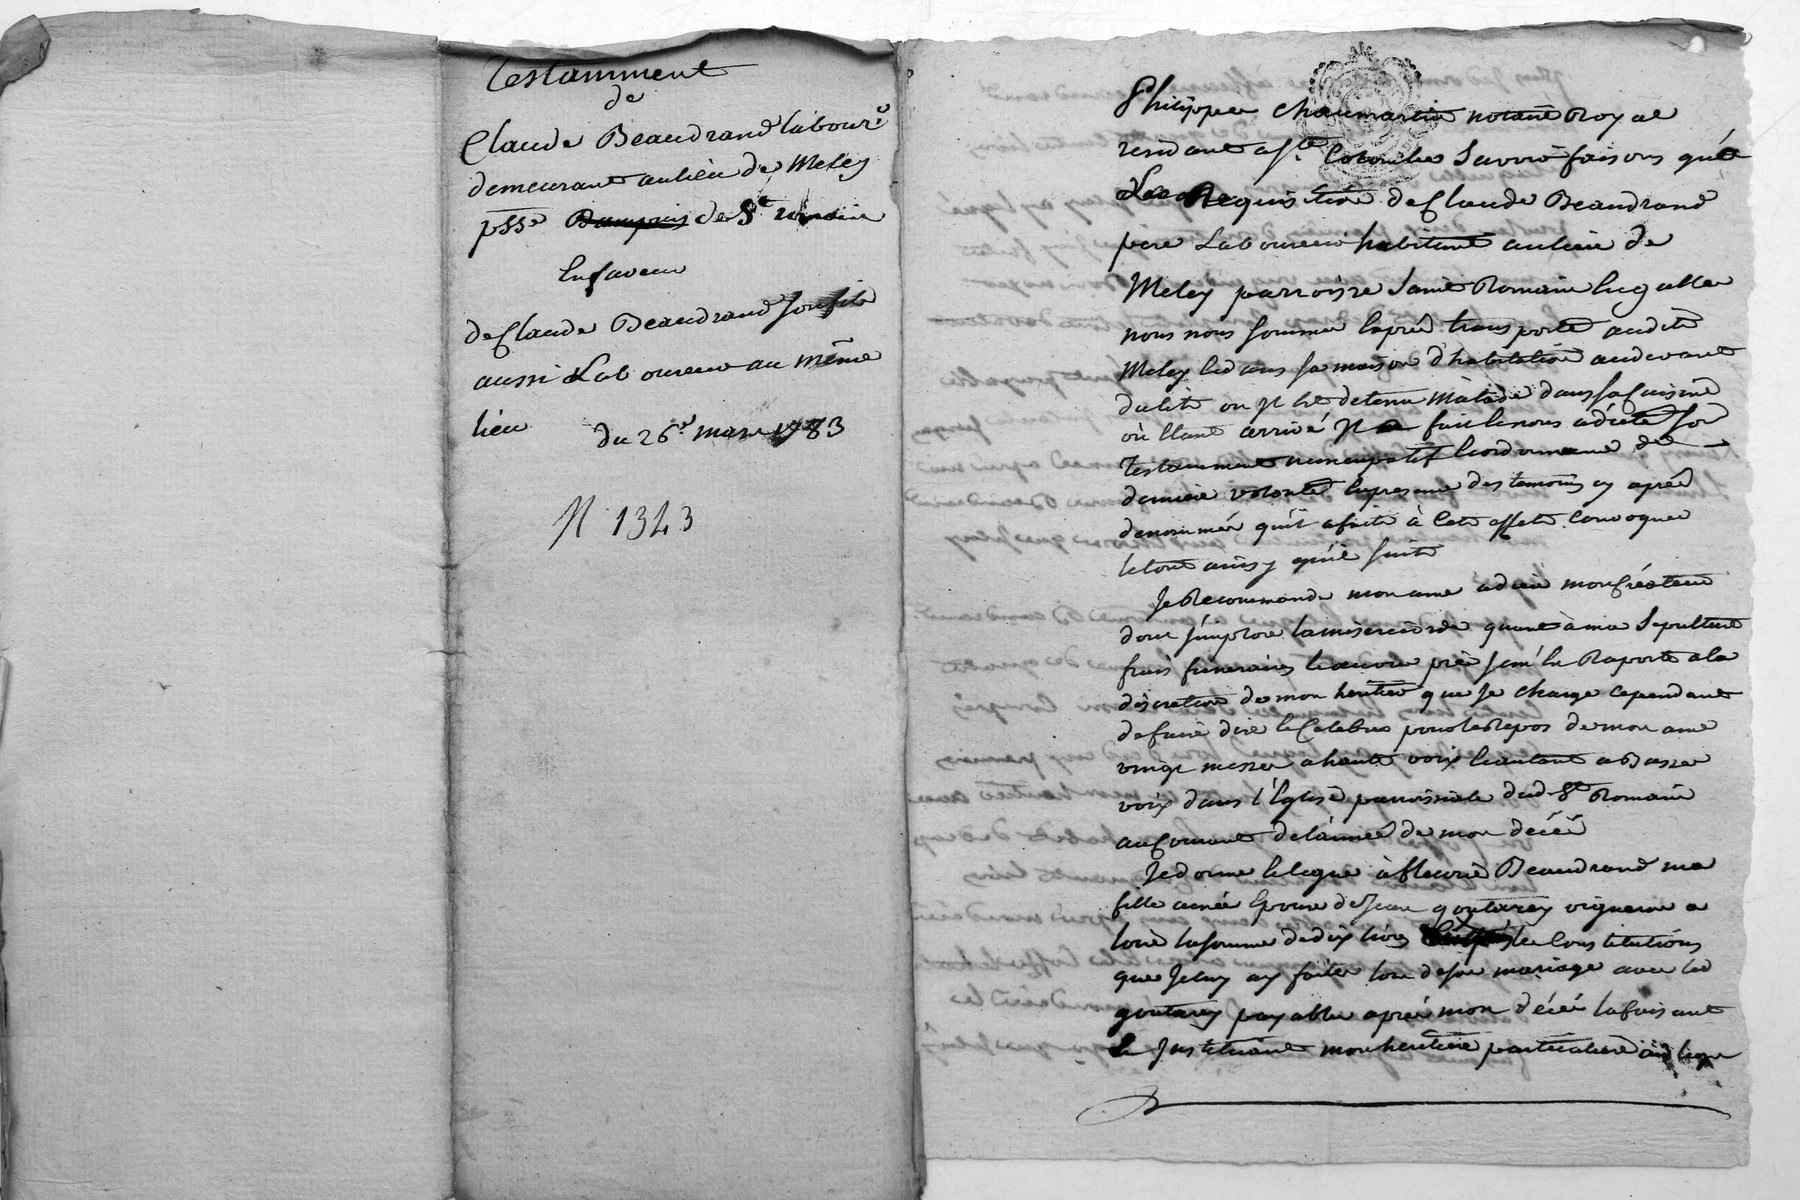 Testamment
de
Claude Beaudrand labour.r
demeurant au lieu de Meley
psse Dampuis de St romain
En faveur
de Claude Beaudrand son fils
aussi Laboureur au même
lieu du 26.e mars 1783
N 1343
Philippe Chaumartin notaire Royal
residant a Ste Colombe Savoir faisons qu'à
La Requisition de Claude Beaudrand
pere Laboureur habitant au lieu de
Meley parroisse Saint Romain en galle
nous nous sommes exprès transporté audit
Meley et dans sa maison d'habitation au devant
du lit ou Jl est detenu malade dans sa cuisine
où étant arrivé Jl a fait et nous a dicté son
Testamment nuncupatif et ordonnance de
derniere volonté en presence des temoins cy après
denommés qu'il a fait à cet effet convoquer
le tout ainsy qu'il suit
Je Recommande mon ame a dieu mon Créateur
dont J'implore la misericorde quant à ma Sepulture
frais funeraires et œuvres pies J'en me Raporte a la
discretion de mon heritier que Je charge cependant
de faire dire et Celebrer pour le Repos de mon ame
vingt messes a haute voix et autant a Basse
voix dans l'Eglise parroissiale dud. St Romain
au Courant de l'année de mon décés
Je donne et legue à fleurie Beaudrand ma
fille ainée Epouse de Jean goutarey vigneron a
loire la somme de dix livres les Constitutions
que Je luy ay faites lors de son mariage avec led
goutarey payable après mon décés la faisant
Et Jnstituant mon heritiere particuliere aud legs